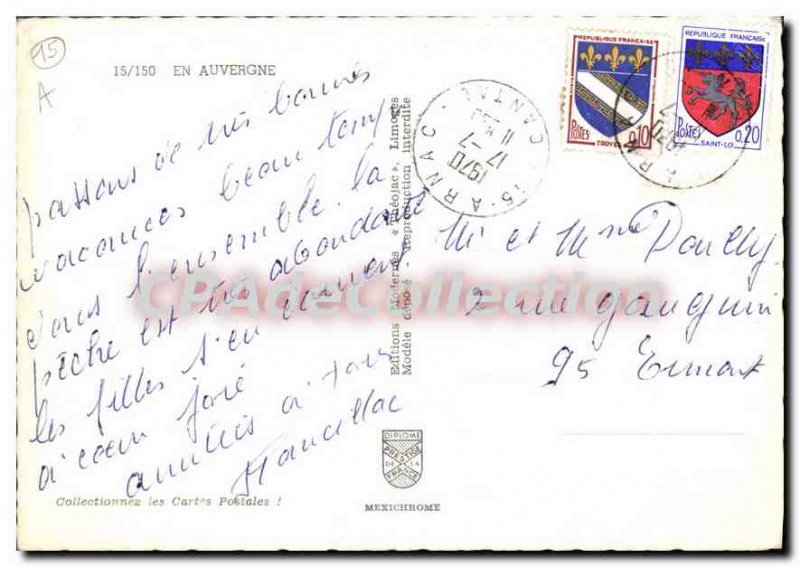 95
A
15/150 EN AUVERGNE
passons de très bonnes
vacances beau temp
dans l'ensemble. la
pêche est très abondante
les filles s'en donnent
à coeur joie
amitiés à tous
Collectionnez les Cartes Postales !
Editions Modernes « Théojac », Limoges
Modèle déposé - Reproduction interdite
DIPLOME
PRESTIGE
DE LA
FRANCE
MEXICHROME
15 - ARNAC
CANTAL
17 - 7
1970
REPUBLIQUE FRANCAISE
POSTES
0,10
TROYES
REPUBLIQUE FRANCAISE
Postes
0,20
SAINT-LO
M et Mme
2 rue gauguin
95 Ermont
CPAdeCollection